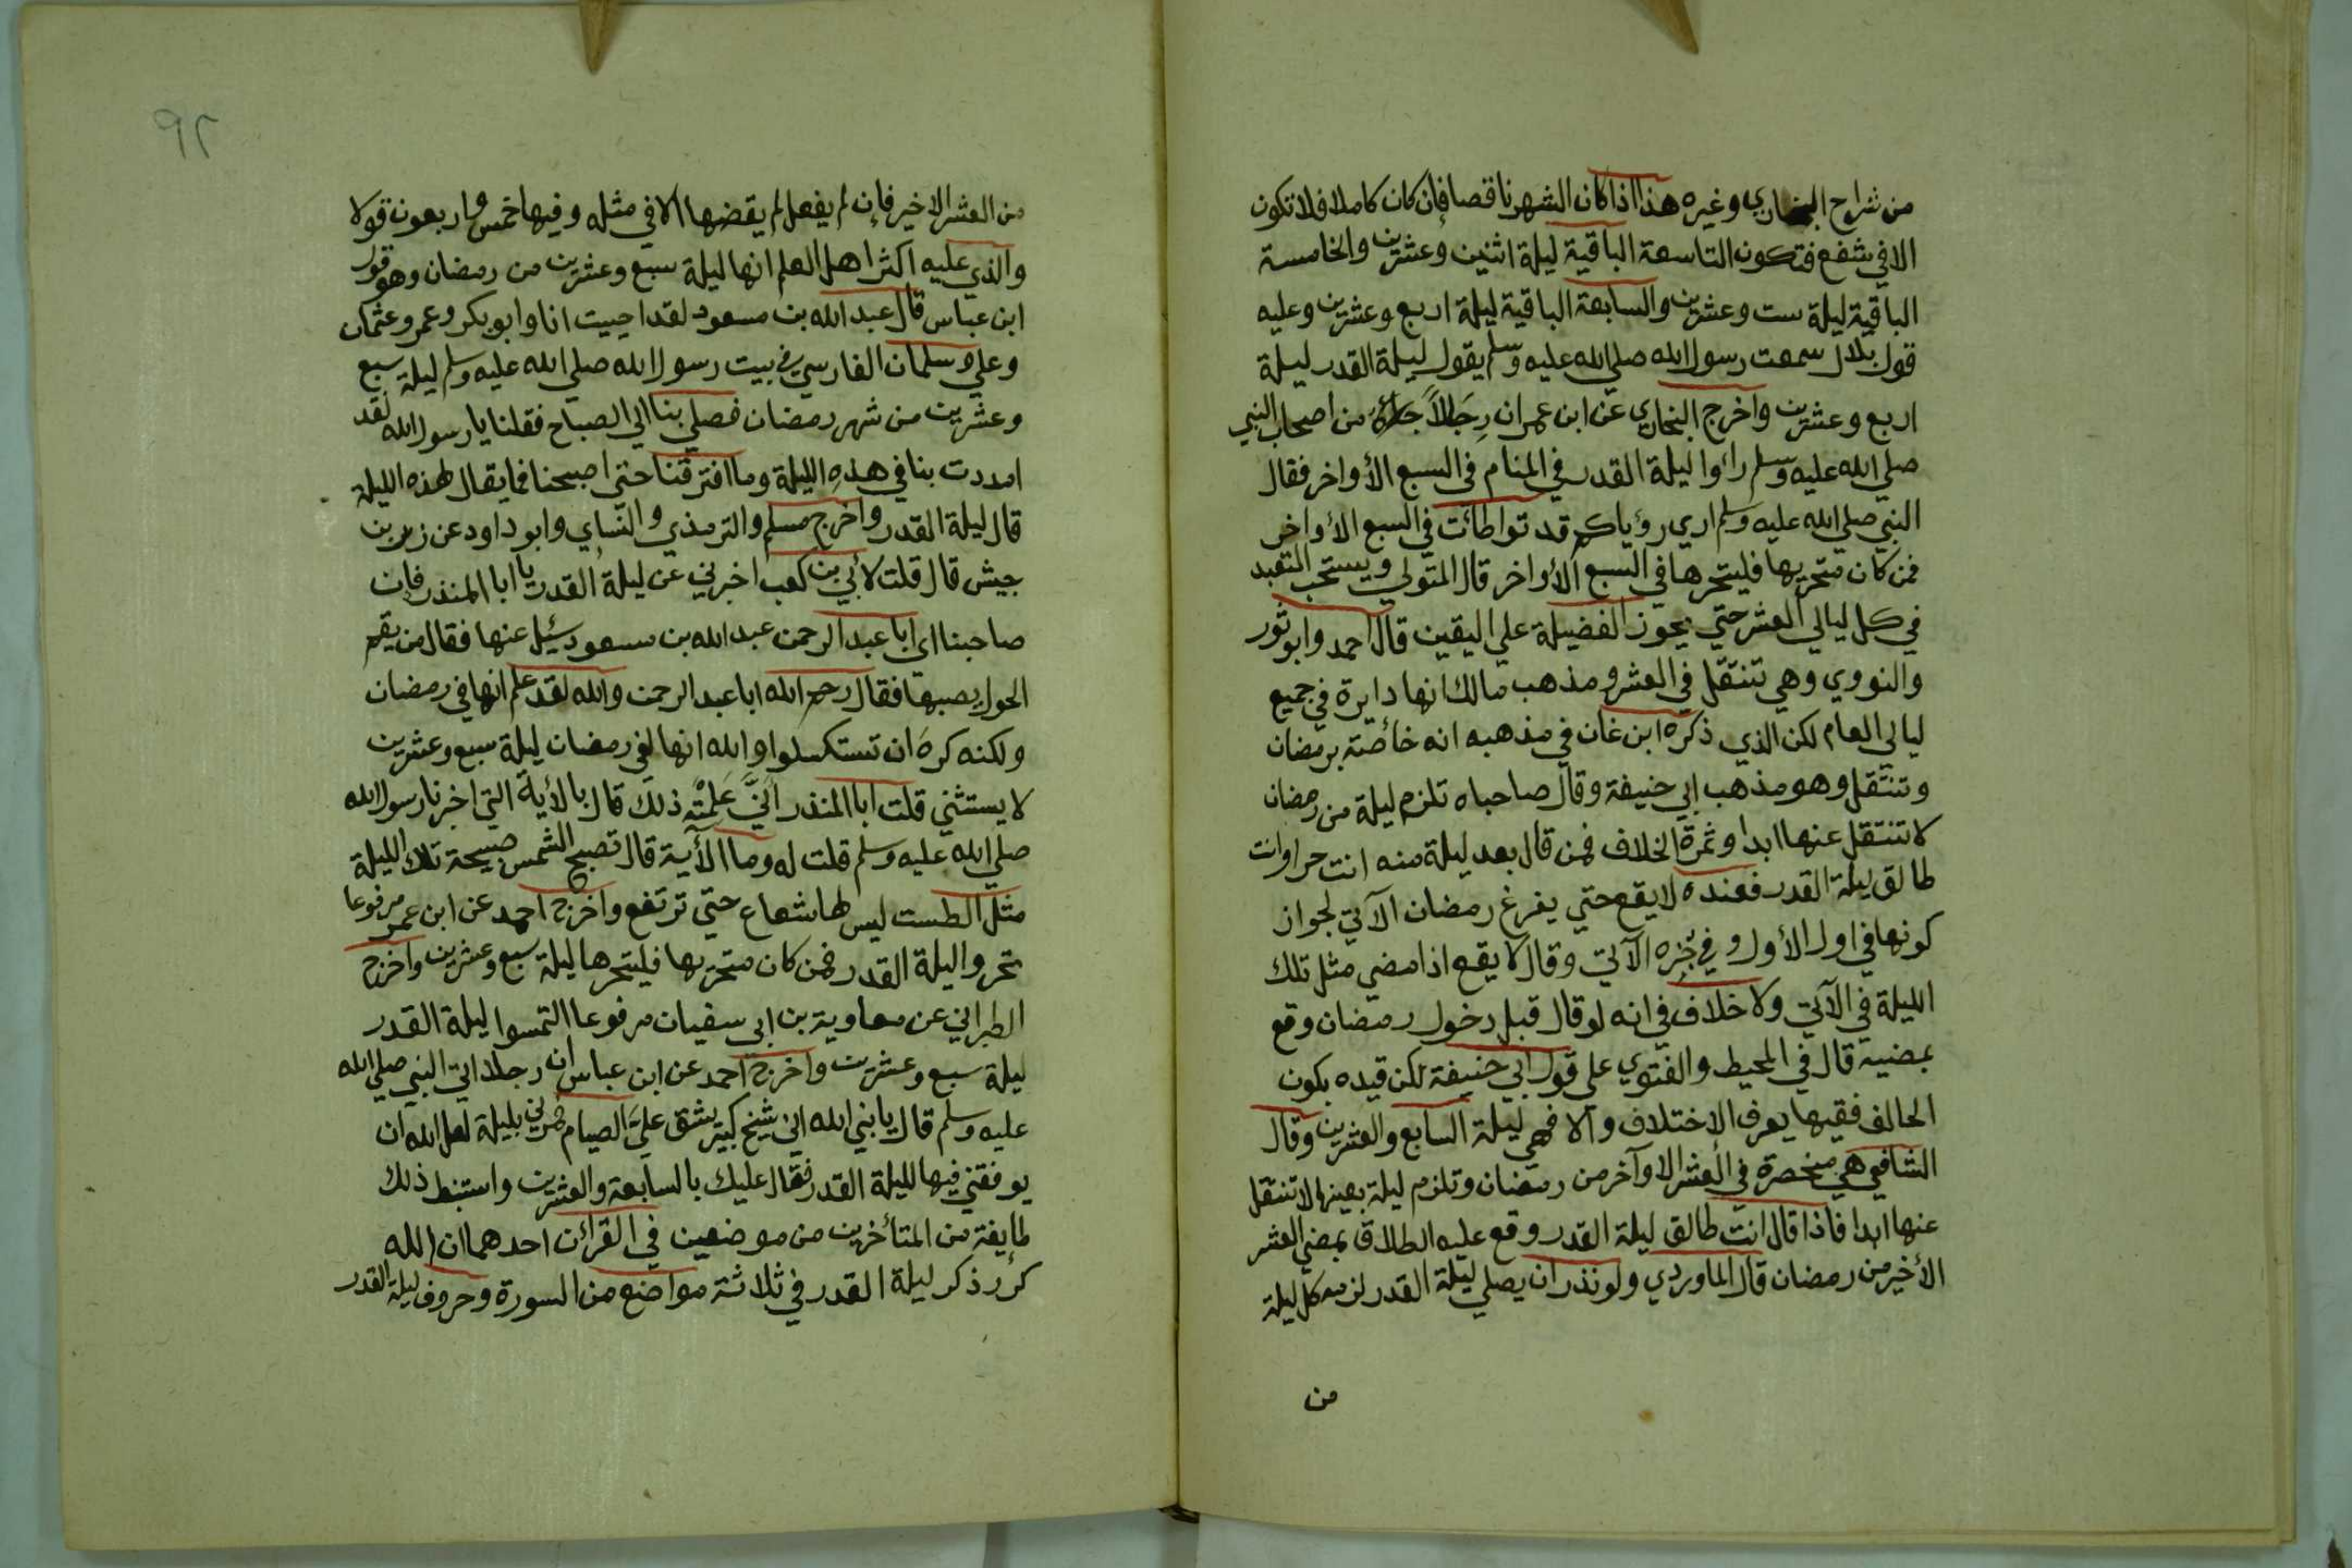 من شراح البخاري وغيره هذا اذا كان الشهر ناقصا فإن كان كاملا فلا تكون
الا في شفع فتكون التاسعة الباقية ليلة اثنين وعشرين والخامسة
الباقية ليلة ست وعشرين والسابعة الباقية ليلة اربع وعشرين وعليه
قول بلال سمعت رسول الله صلي الله عليه وسلم يقول ليلة القدر ليلة
اربع وعشرين واخرج البخاري عن ابن عمر ان رجالاً من اصحاب النبي
صلي الله عليه وسلم رأوا ليلة القدر في المنام في السبع الأواخر فقال
النبي صلي الله عليه وسلم اري رؤياكم قد تواطأت في السبع الأواخر
فمن كان متحريها فليتحرها في السبع الأواخر قال المتولي ويستحب التعبد
في كل ليالي العشر حتي يحوز الفضيلة علي اليقين قال احمد وابو ثور
والنووي وهي تنتقل في العشر ومذهب مالك انها دايرة في جميع
ليالي العام لكن الذي ذكره ابن غان في مذهبه انه خاصة برمضان
وتنتقل وهو مذهب ابي حنيفة وقال صاحباه تلزم ليلة من رمضان
لا تنتقل عنها ابدا وثمرة الخلاف فمن قال بعد ليلة منه انت حر او انت
طالق ليلة القدر فعنده لا يقع حتي يفرغ رمضان الآتي لجواز
كونها في اول الأول وفي الآتي وقال لا يقع اذا مضي مثل تلك
الليلة في الآتي ولا خلاف في انه لو قال قبل دخول رمضان وقع
بمضيه قال في المحيط والفتوي علي قول ابي حنيفة لكن قيده بكون
الحالف فقيها يعرف الاختلاف والا فهي ليلة السابع والعشرين وقال
الشافعي هي منحصرة في العشر الاوآخر من رمضان وتلزم ليلة بعينها لا تنتقل
عنها ابدا فاذا قال انت طالق ليلة القدر وقع عليه الطلاق بمضي العشر
الأخير من رمضان قال الماوردي ولو نذر ان يصلي ليلة القدر لزمه كل ليلة
من
٩٢
من العشر الاخير فإن لم يفعل لم يقضها الا في مثله وفيها خمس واربعون قولا
والذي عليه اكثر اهل العلم انها ليلة سبع وعشرين من رمضان وهو قول
ابن عباس قال عبد الله بن مسعود لقد احييت انا وابو بكر وعمر وعثمان
وعلي وسلمان الفارسي في بيت رسول الله صلي الله عليه وسلم ليلة سبع
وعشرين من شهر رمضان فصلي بنا الي الصباح فقلنا يا رسول الله لقد
امددت بنا في هذه الليلة وما افترقنا حتي اصبحنا فما يقال لهذه الليلة
قال ليلة القدر واخرج مسلم والترمذي والنساي وابو داود عن زر بن
حبيش قال قلت لأبي بن كعب اخبرني عن ليلة القدر يا ابا المنذر فإن
صاحبنا اي ابا عبد الرحمن عبد الله بن مسعود سئل عنها فقال من يقم
الحول يصبها فقال رحم الله ابا عبد الرحمن والله لقد علم انها في رمضان
ولكنه كره ان تستكسلوا والله انها لفي رمضان ليلة سبع وعشرين
لا يستثني قلت ابا المنذر انَّي عَلِمْتَه ذلك قال بالأية التي اخبرنا رسول الله
صلي الله عليه وسلم قلت له وما الآية قال تصبح الشمس صبيحة تلك الليلة
مثل الطست ليس لها شعاع حتي ترتفع واخرج احمد عن ابن عمر مرفوعا
تحروا ليلة القدر فمن كان متحريها فليتحرها ليلة سبع وعشرين واخرج
الطبراني عن معاوية بن ابي سفيان مرفوعا التمسوا ليلة القدر
ليلة سبع وعشرين واخرج احمد عن ابن عباس ان رجلا اتي النبي صلي الله
عليه وسلم قال يا نبي الله اني شيخ كبير يشق عليَّ الصيام فمرني بليلة لعل الله ان
يوفقني فيها لليلة القدر فقال عليك بالسابعة والعشرين واستنبط ذلك
طايفة من المتأخرين من موضعين في القرآن احدهما ان الله
كرر ذكر ليلة القدر في ثلاثة مواضع من السورة وحروف ليلة القدر